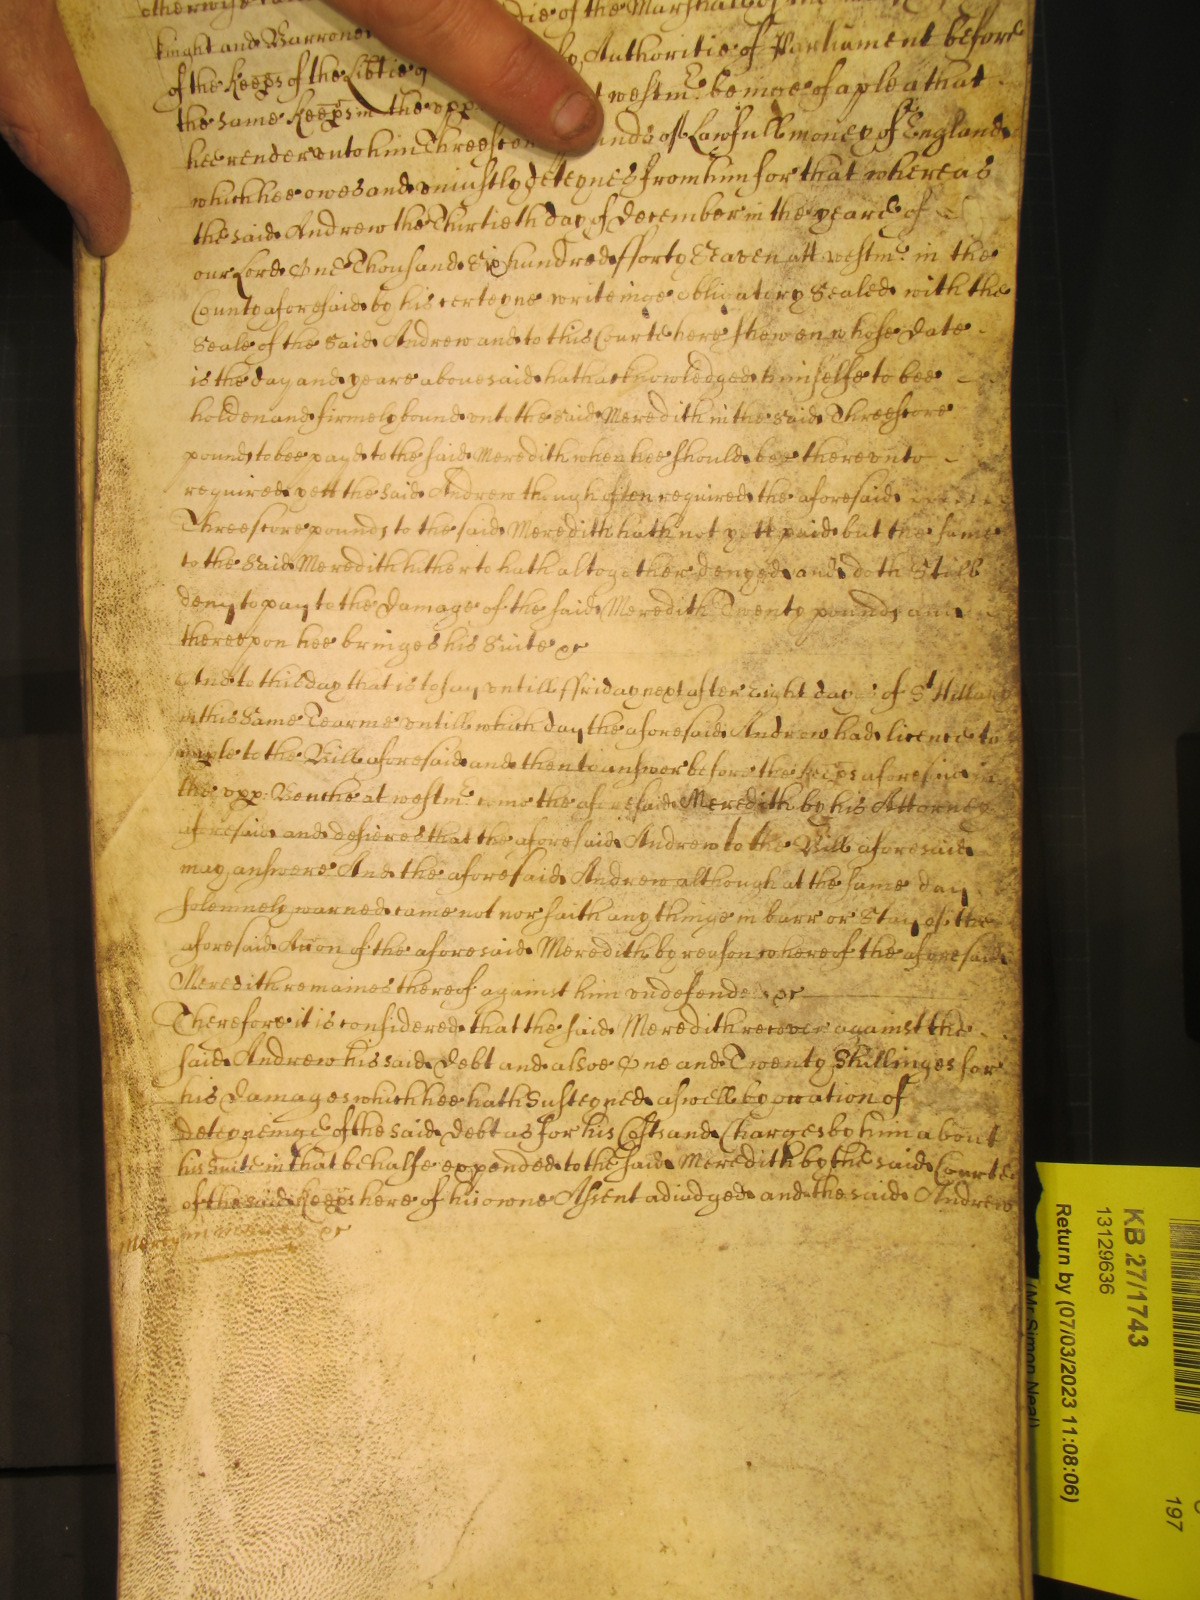 otherwise
knight and Barronet die of the Marshalsey of the
of the Keeps of the Libtie of by Authoritie of Parliament before
the same Keeps in the upp westmr. beinge of a plea that
hee render unto him Threescore pounds of Lawfull money of England
which hee owes and uniustly deteynes from him for that whereas
the said Andrew the Thirtieth day of December in the yeare of
our Lord One Thousand Six hundred fforty Seaven att westmr. in the
County aforesaid by his certeyne writeinge obligatory Sealed with the
Seale of the said Andrew and to this Courte here shewen whose date
is the day and yeare abouesaid hath acknowledged himselfe to bee
holden and firmely bound unto the said Meredith in the said Threescore
pounds to bee payd to the said Meredith when hee should bee thereunto
required yett the said Andrew though often required the aforesaid
Threescore pounds to the said Meredith hath not yett paid but the same
to the said Meredith hitherto hath altogether denyed and doth Still
deny to pay to the damage of the said Meredith Twenty pounds and
thereupon hee bringes his Suite &c
And to this day that is to say untill ffriday next after eight dayes of St Hillary
in this same Tearme untill which day the aforesaid Andrew had licence to
imple to the Bill aforesaid and then to answer before the Keeps aforesaid
the upp Benche at westmr. came the aforesaid Meredith by his Attorney
aforesaid and desieres that the aforesaid Andrew to the Bill aforesaid
may answere And the aforesaid Andrew although at the same day
solemnely warned came not nor saith any thinge in barr or Stay of the
aforesaid Accon of the aforesaid Meredith by reason whereof the aforesaid
Meredith remaines thereof against him undefended &c
Therefore it is considered that the said Meredith recover against the
said Andrew his said debt and alsoe One and Twenty Shillinges for
his damages which hee hath Susteyned aswell by occation of
deteyneinge of the said debt as for his Costs and Charges by him about
his Suite in that behalfe expended to the said Meredith by the said Courte
of the said Keeps here of his owne Assent adiudged and the said Andrew
Mercy in &c
KB 27/1743
13129636
Return by (07/03/2023 11:08:06)
(Mr Simon Neal)
197